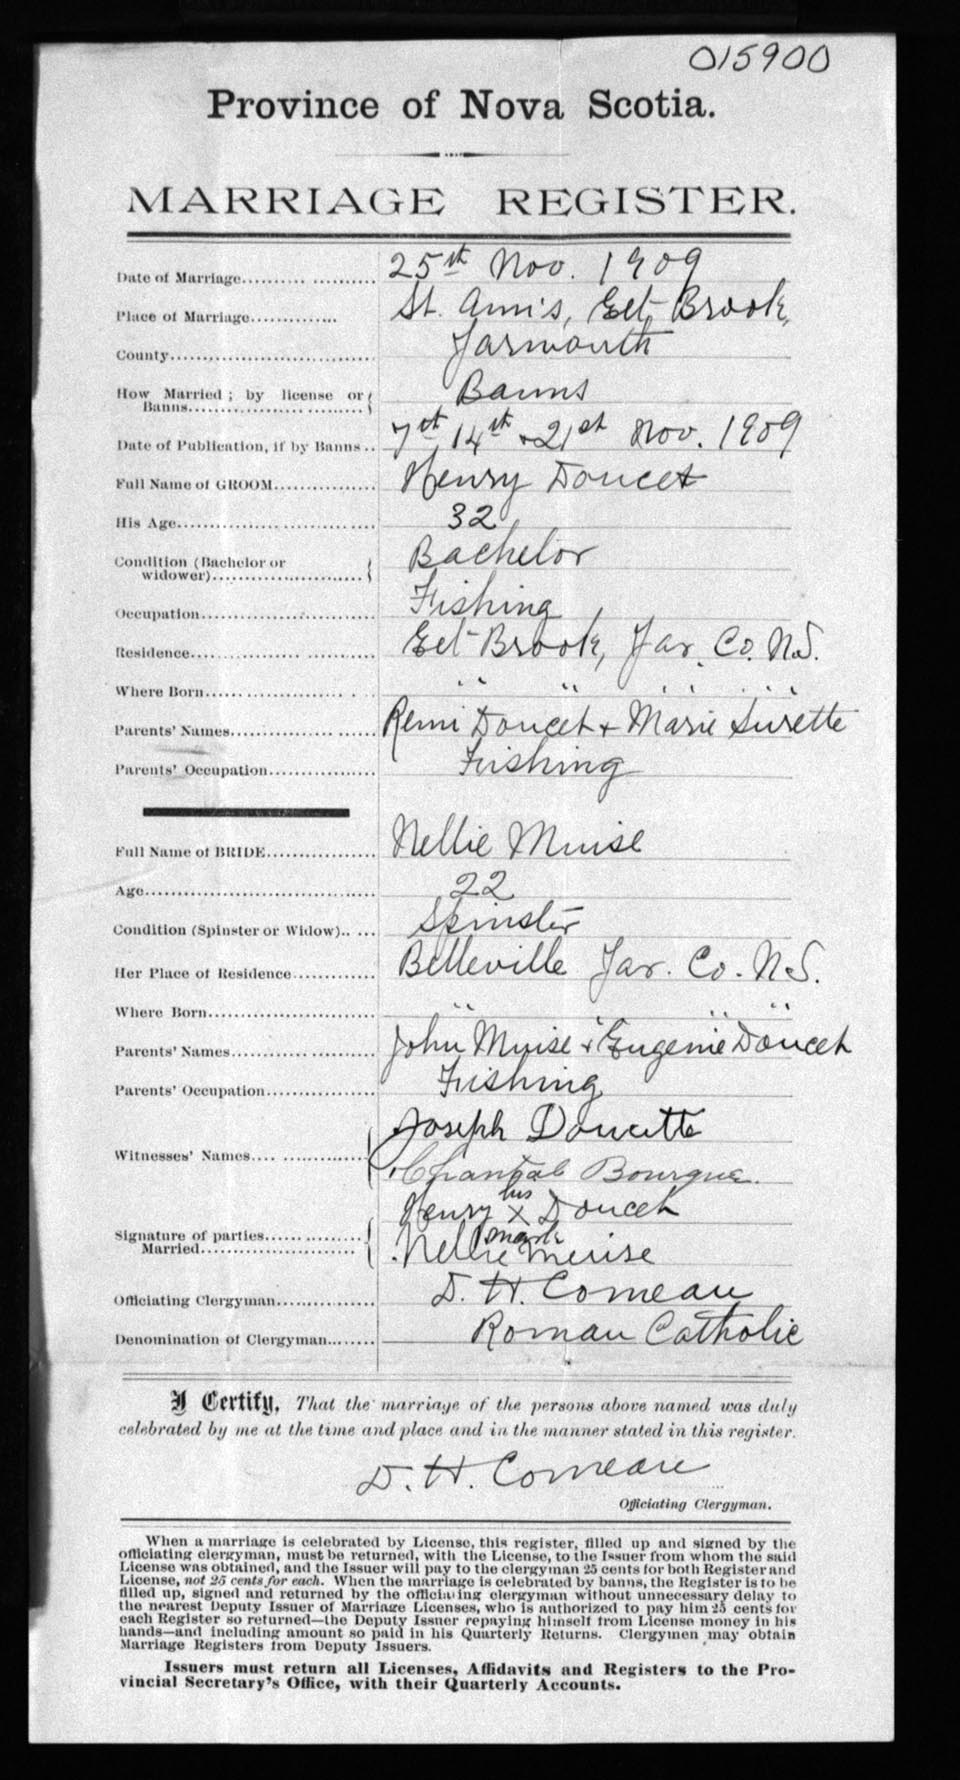 015900
Province of Nova Scotia.
MARRIAGE REGISTER.
Date of Marriage.................... 25st Nov. 1909
Place of Marriage............. St. Ann's, Eel Brook,
County............................... Yarmouth
How Married ; by license or { Banns
Banns........................... {
Date of Publication, if by Banns.. 7th, 14th + 21st Nov. 1909
Full Name of GROOM............... Henry Doucet
His Age.............................. 32
Condition (Bachelor or { Bachelor
widower)....................... {
Occupation........................... Fishing
Residence............................ Eel-Brook, Yar. Co. N.S.
Where Born........................ " " " "
Parents' Names...................... Remi Doucet + Marie Surette
Parents' Occupation................ Fishing
Full Name of BRIDE................ Nellie Muise
Age................................... 22
Condition (Spinster or Widow)..... Spinster
Her Place of Residence............ Belleville Yar. Co. N.S.
Where Born........................ " " " "
Parents' Names...................... John Muise + Eugenie Doucet
Parents' Occupation................ Fishing
Joseph Doucette
Witnesses' Names.................. {
Chantal Bourque.
Henry his X Doucet
mark
Signature of parties............... {
Married........................... { Nellie Muise
Officiating Clergyman.............. D. H. Comeau
Denomination of Clergyman....... Roman Catholic
I Certify, That the marriage of the persons above named was duly
celebrated by me at the time and place and in the manner stated in this register.
D. H. Comeau
Officiating Clergyman.
When a marriage is celebrated by License, this register, filled up and signed by the
officiating clergyman, must be returned, with the License, to the Issuer from whom the said
License was obtained, and the Issuer will pay to the clergyman 25 cents for both Register and
License, not 25 cents for each. When the marriage is celebrated by banns, the Register is to be
filled up, signed and returned by the officiating clergyman without unnecessary delay to
the nearest Deputy Issuer of Marriage Licenses, who is authorized to pay him 25 cents for
each Register so returned—the Deputy Issuer repaying himself from License money in his
hands—and including amount so paid in his Quarterly Returns. Clergymen may obtain
Marriage Registers from Deputy Issuers.
Issuers must return all Licenses, Affidavits and Registers to the Pro-
vincial Secretary's Office, with their Quarterly Accounts.